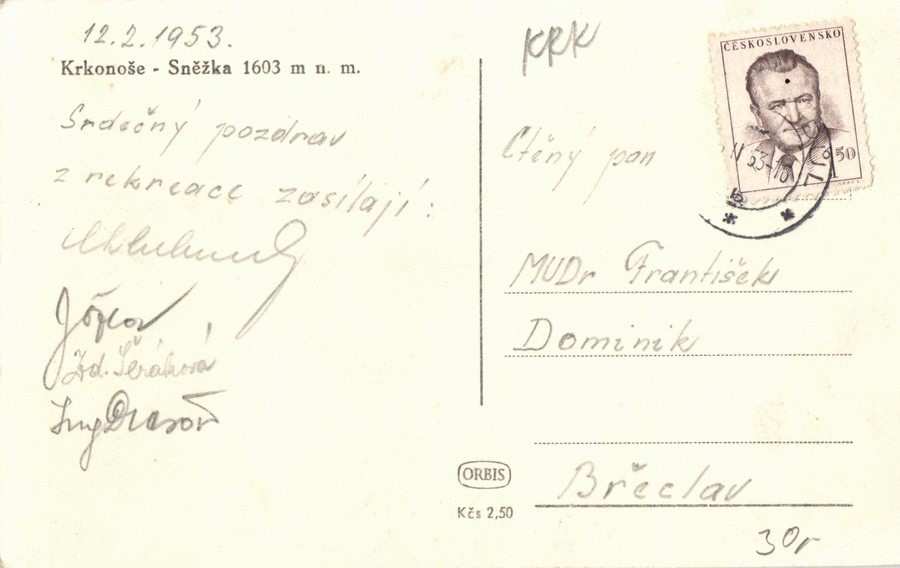 12.2.1953.
Krkonoše - Sněžka 1603 m n. m.
Srdečný pozdrav
z rekreace zasílají:
Zd. Šeráková
Ing
KRK
ČESKOSLOVENSKO
1 50
53-18
Ctěný pan
MUDr František
Dominik
Břeclav
ORBIS
Kčs 2,50
30,-